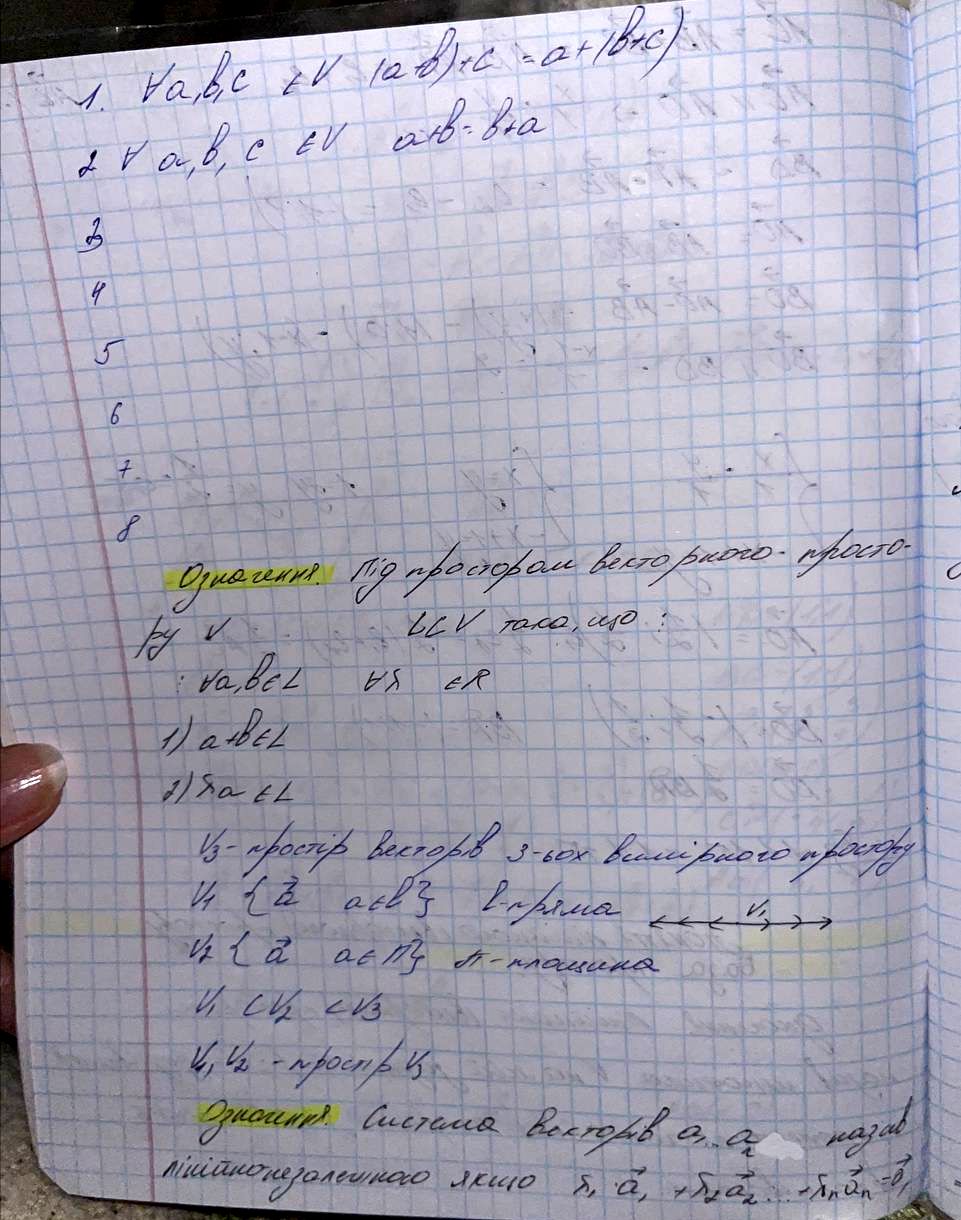 1. ∀a,b,c ∈V (a+b)+c = a+(b+c)
2 ∀ a,b,c ∈V a+b=b+a
3
4
5
6
7
8
Означення. Під простором векторного просто-
ру V L⊂V така, що :
: ∀a,b∈L ∀λ ∈R
1) a+b∈L
2) λa ∈L
V₃ - простір векторів 3-ьох вимірного простору
V₁ {a⃗ a∈l} l-пряма V₁
V₂ {a⃗ a∈π} π-площина
V₁ ⊂V₂ ⊂V₃
V₁, V₂ - простір V₃
Означення. Система векторів a₁ aₙ назив
лінійнонезалежного якщо λ₁ a⃗₁ +λ₂a⃗₂ ...+λₙa⃗ₙ=0⃗,